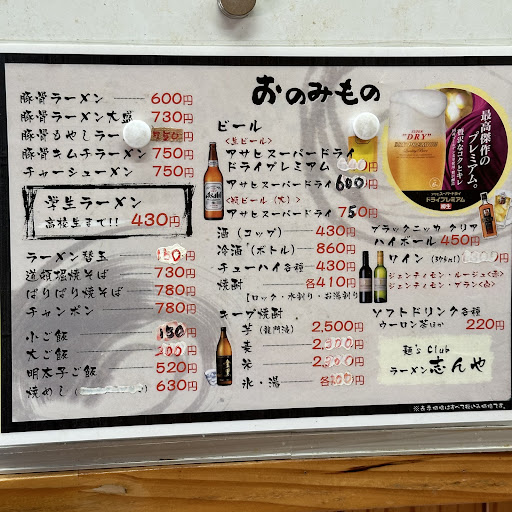 豚骨ラーメン 600円
豚骨ラーメン大盛 730円
豚骨もやしラーメン 円
豚骨キムチラーメン 750円
チャーシューメン 750円
学生ラーメン
高校生まで!! 430円
ラーメン替玉 150円
道頓堀焼そば 730円
ぱりぱり焼そば 780円
チャンポン 780円
小ご飯 150円
大ご飯 200円
明太子ご飯 520円
焼めし 630円
おのみもの
ビール
<生ビール>
アサヒスーパードライ
ドライプレミアム 円
アサヒスーパードライ 600円
<瓶ビール(大)>
アサヒスーパードライ 750円
酒(コップ) 430円
冷酒(ボトル) 860円
チューハイ各種 430円
焼酎 各410円
[ロック・水割り・お湯割り]
キープ焼酎
芋 2,500円
麦 円
米 円
氷・湯 各 円
"DRY"
最高傑作の
プレミアム。
贅沢なコクとキレ
ドライプレミアム
ブラックニッカ クリア
ハイボール 450円
ワイン 円
ソフトドリンク各種
ウーロン茶ほか 220円
麺's Club
ラーメン 志んや
※表示価格はすべて税込み価格です。